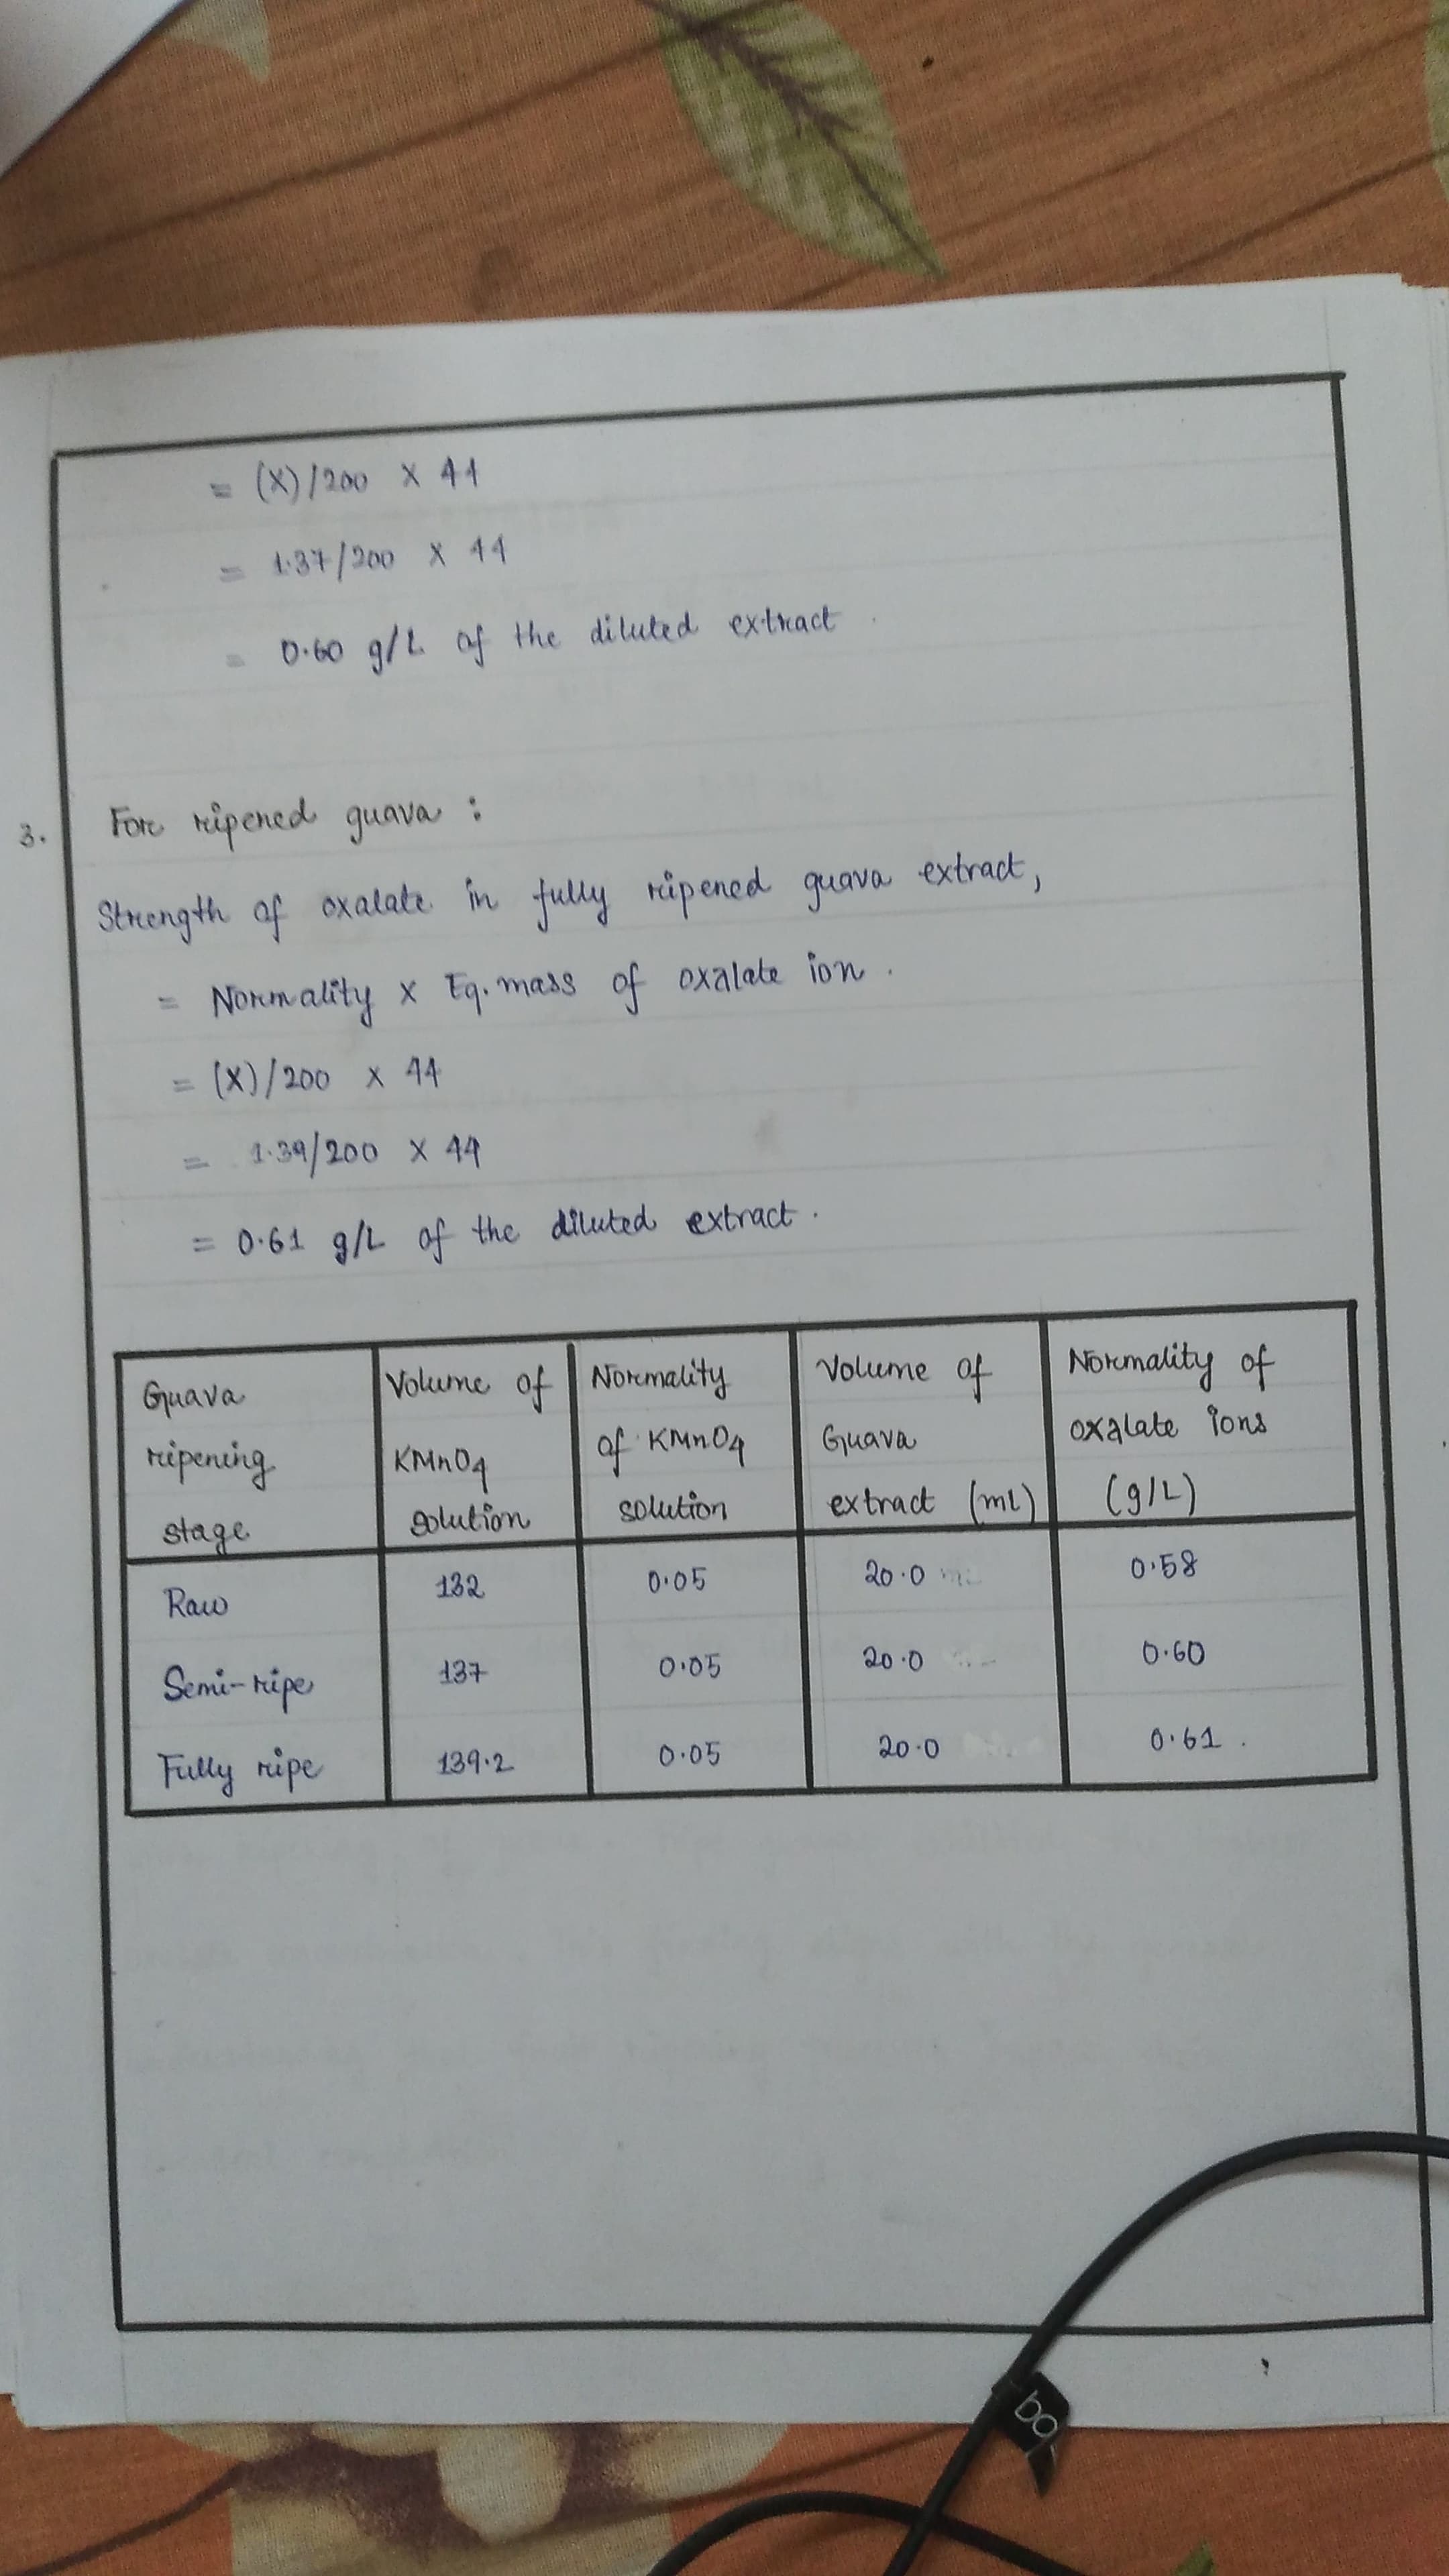 = (X)/200 X 44
= 1.37/200 X 44
= 0.60 g/L of the diluted extract.
3. For ripened guava :
Strength of oxalate in fully ripened guava extract,
= Normality X Eq. mass of oxalate ion.
= (X)/200 X 44
= 1.39/200 X 44
= 0.61 g/L of the diluted extract.
Guava ripening stage
Volume of KMnO4 solution
Normality of KMnO4 solution
Volume of Guava extract (mL)
Normality of oxalate ions (g/L)
Raw 132 0.05 20.0 0.58
Semi-ripe 137 0.05 20.0 0.60
Fully ripe 139.2 0.05 20.0 0.61.